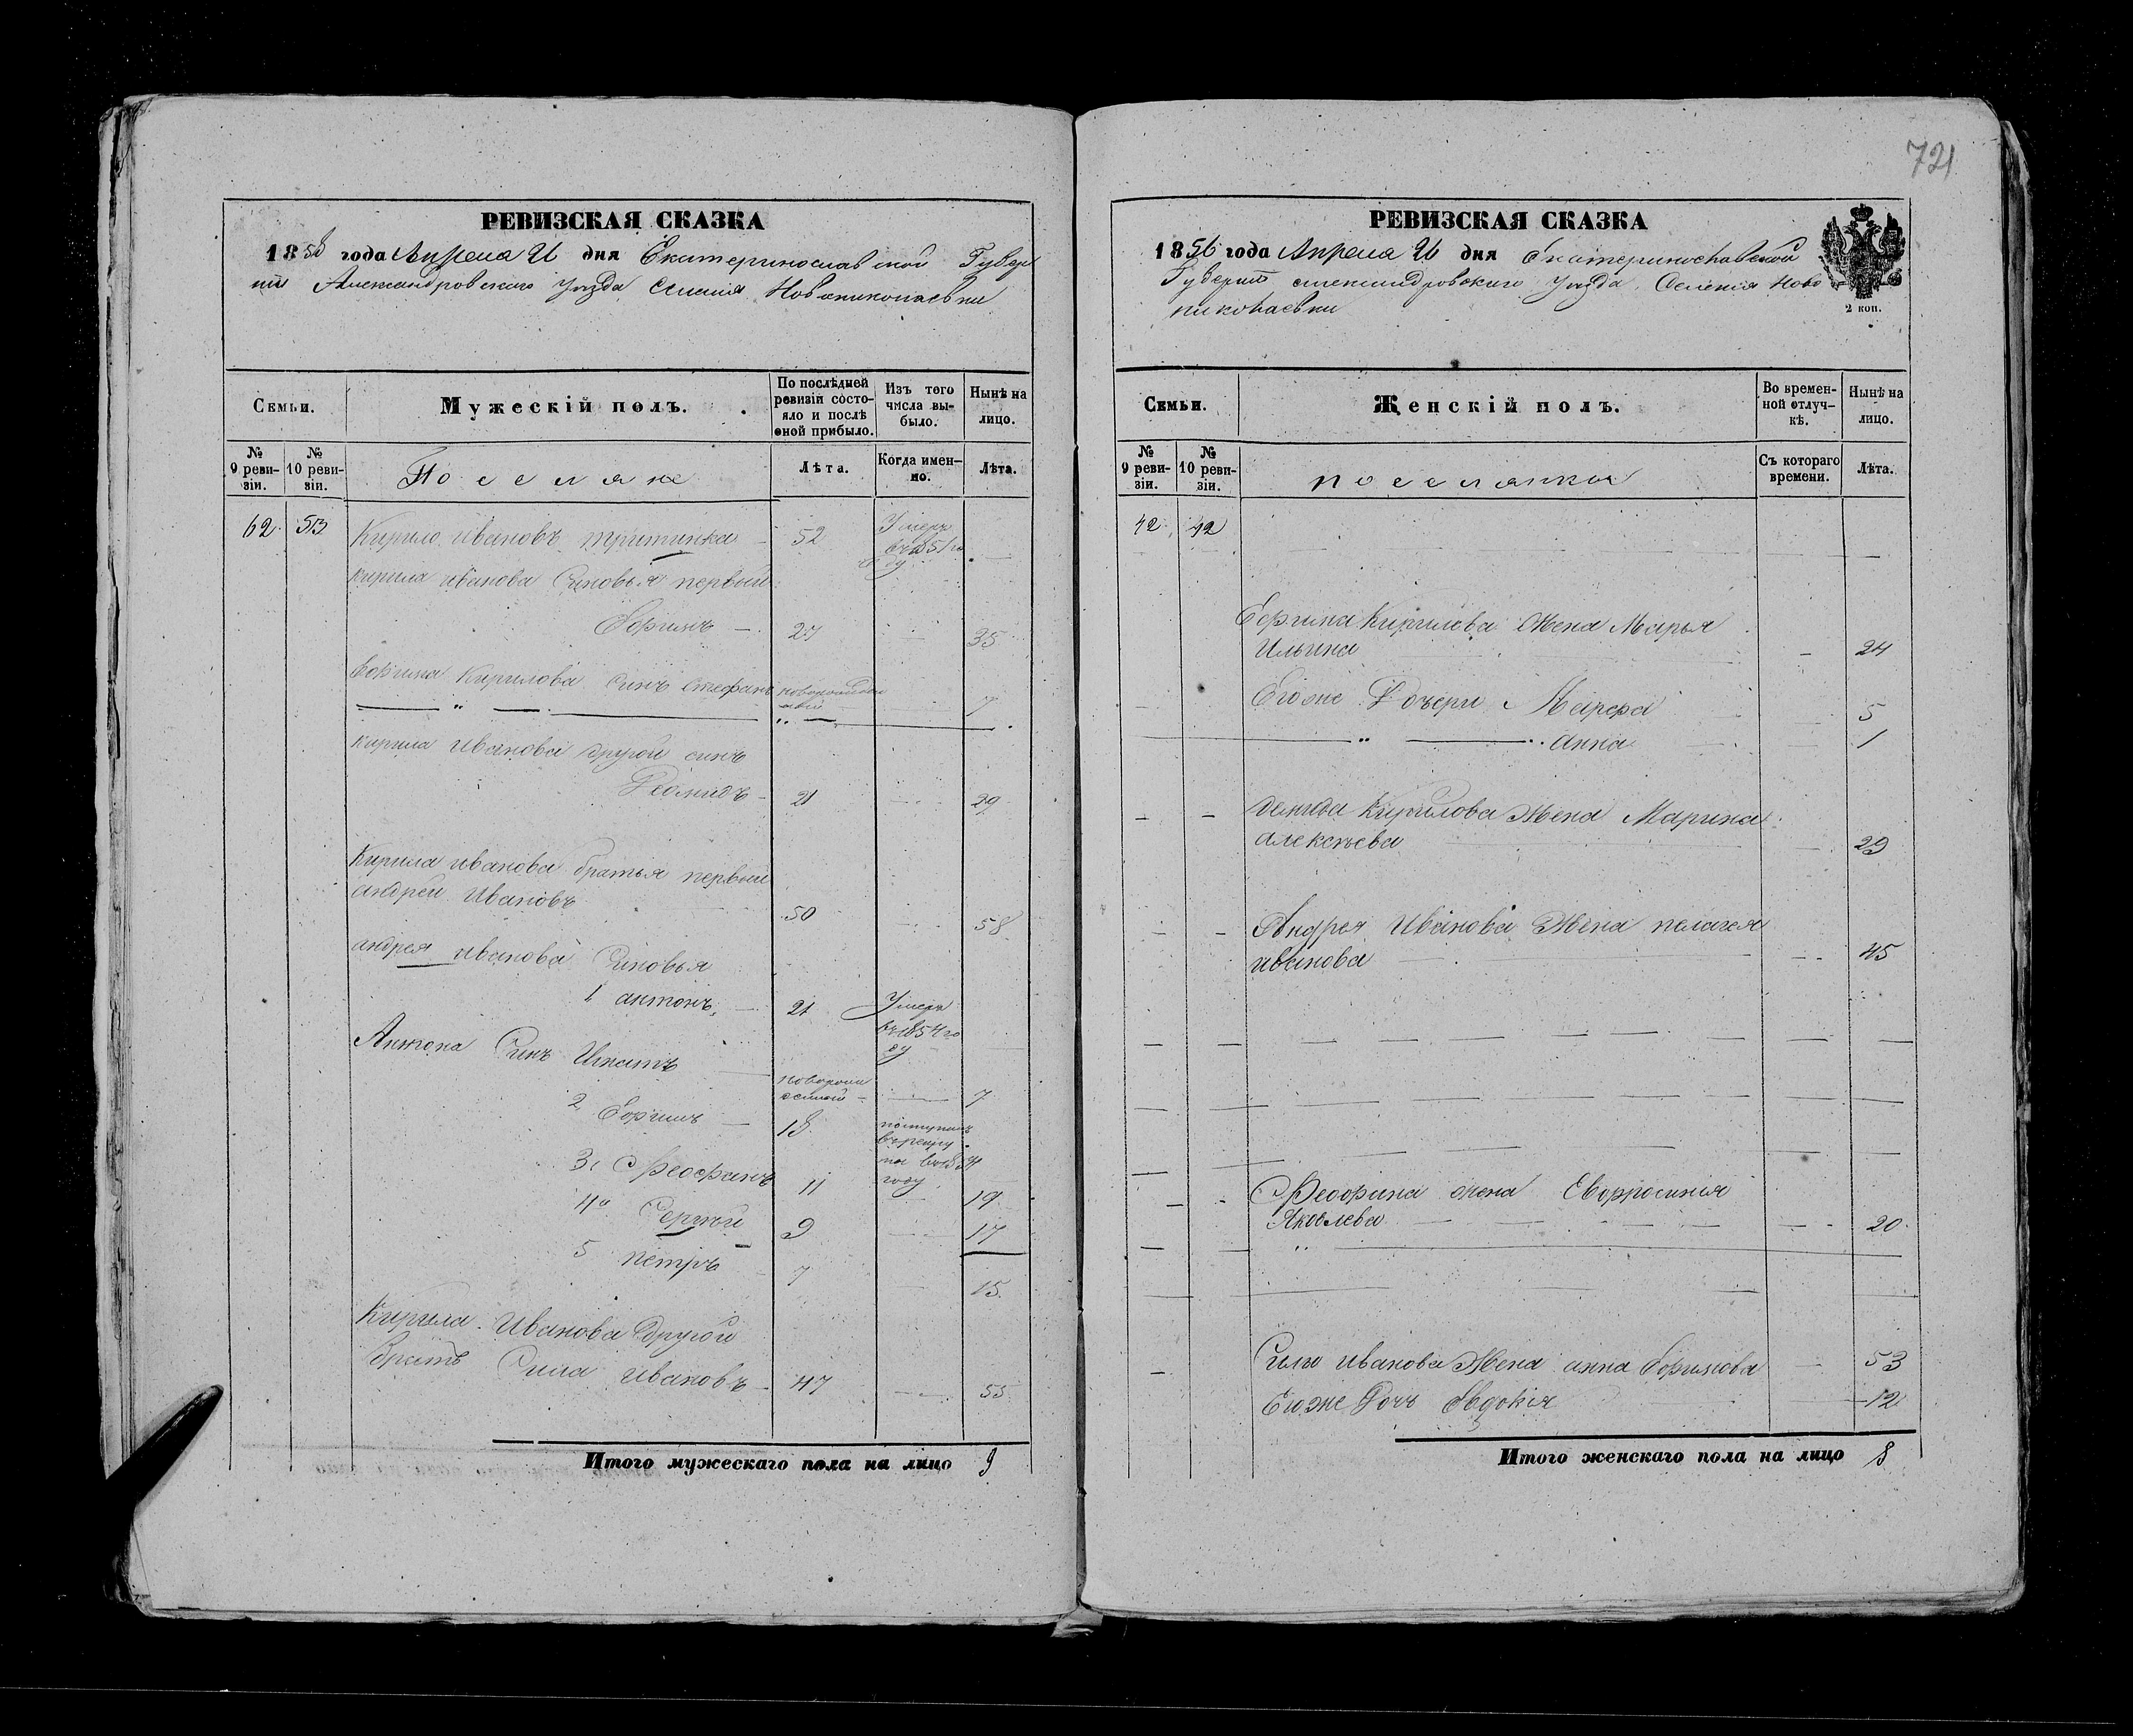 721
РЕВИЗСКАЯ СКАЗКА
1858 года Апреля 21 дня Екатеринославской Губер
нии Александровского Уезда Селения Новониколаевки
Семьи.
Мужескій полъ.
По послѣдней ревизіи состояло и послѣ оной прибыло.
Изъ того числа выбыло.
Нынѣ на лицо.
№ 9 ревизіи.
№ 10 ревизіи.
Поселяне
Лѣта.
Когда именно.
Лѣта.
62 53 Кирило Ивановъ 52 Умеръ
въ 1851 го
ду
Кирила Иванова Синовья первый
Ефимъ 27 35
Ефима Кирилова Синъ Стефанъ новорожден
ный 7
Кирила Иванова другой синъ
Деомидъ 21 29
Кирила Иванова братья первый
андрей Ивановъ 50 58
андрея Иванова Синовья
1 антонъ 21 Умеръ
въ 1854 го
ду
Антона Синъ Игнатъ новорож
денной 7
2 Ефимъ 18 поступилъ
въ рекру
ты въ 1854
году
3 Феофанъ 11 19
4 Сергѣй 9 17
5 петръ 7 15
Кирила Иванова Другой
Братъ Сила Ивановъ 47 55
Итого мужескаго пола на лицо 9
РЕВИЗСКАЯ СКАЗКА
1858 года Апреля 21 дня Екатеринославской
Губернии александровского Уезда Селения Ново
николаевки
2 коп.
Семьи.
Женскій полъ.
Во временной отлучкѣ.
Нынѣ на лицо.
№ 9 ревизіи.
№ 10 ревизіи.
поселянки
Съ котораго времени.
Лѣта.
42 42
Ефима Кирилова Жена Марья
Ильина 24
Егоже Дочери Марфа 5
" Анна 1
Демида Кирилова Жена Марина
алексеева 29
Андрея Иванова Жена пелагея
иванова 45
Феофана жена Евфросиния
Яковлева 20
"
Силы иванова Жена анна Ефимова 53
Егоже Дочь Евдокія 12
Итого женскаго пола на лицо 8